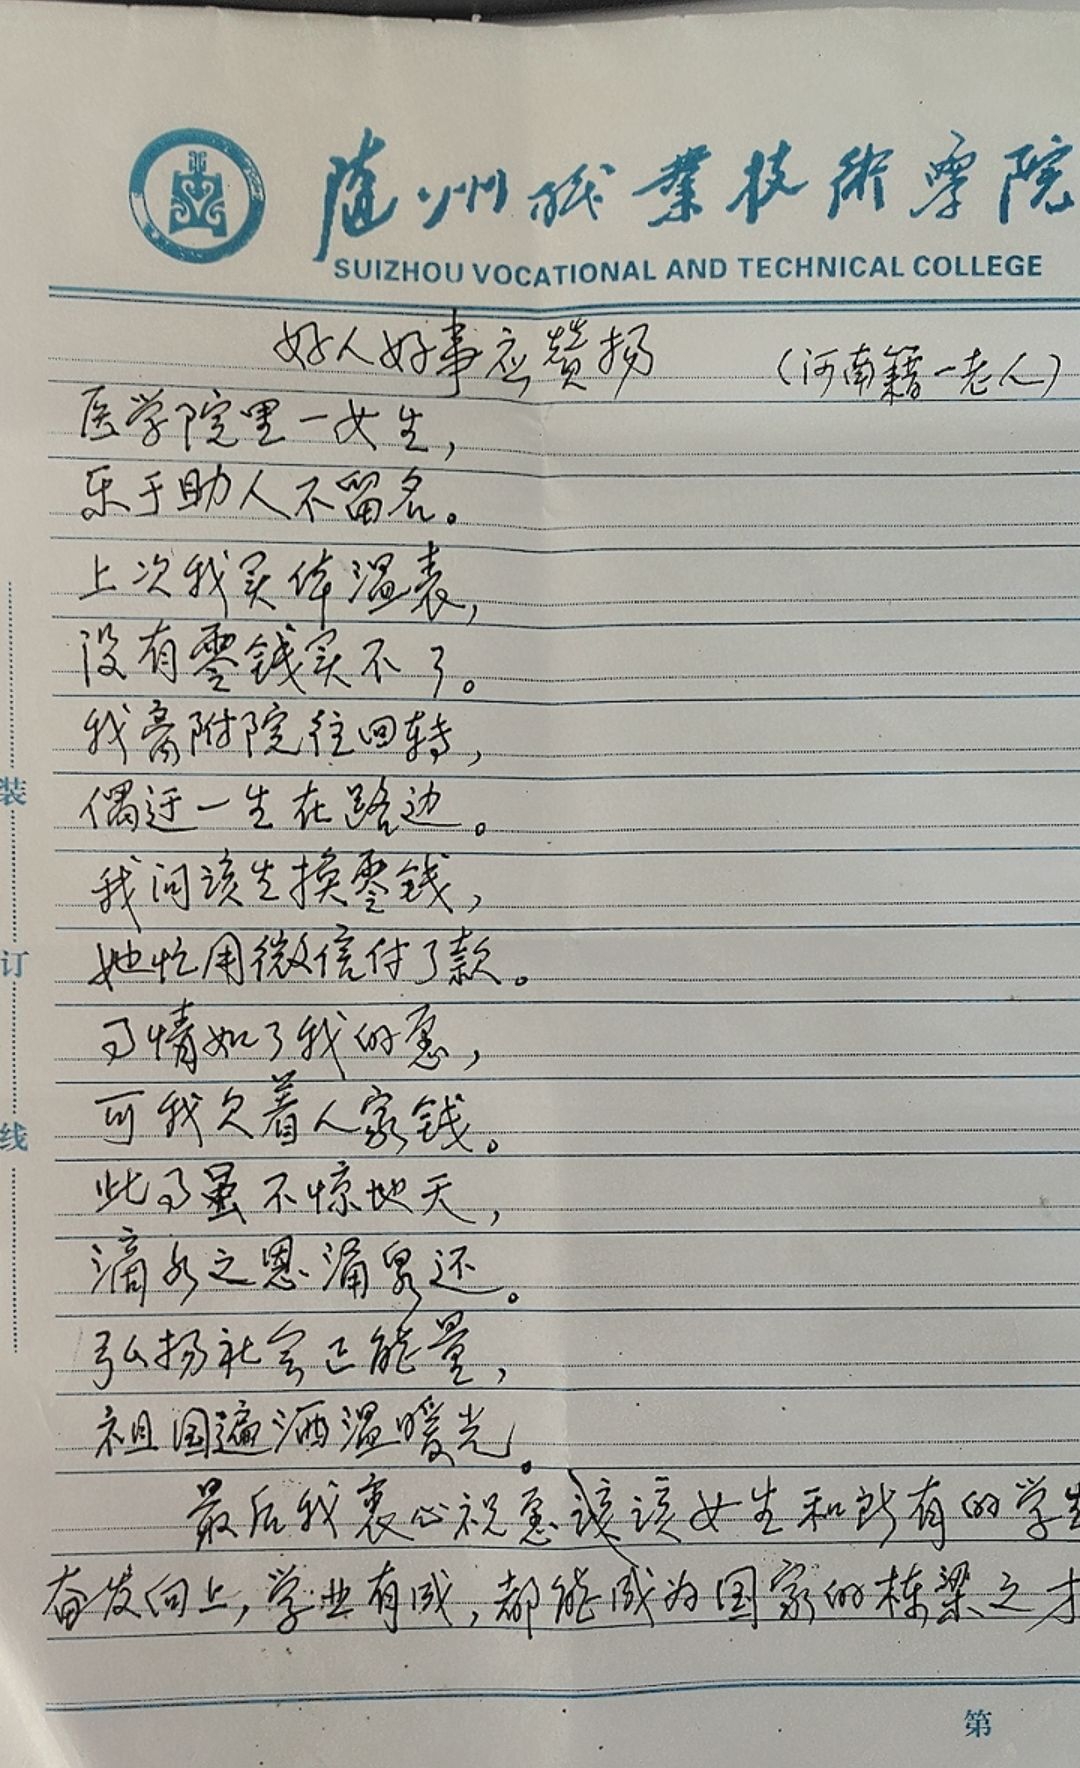 随州职业技术学院
SUIZHOU VOCATIONAL AND TECHNICAL COLLEGE
好人好事应赞扬 （河南籍一老人）
医学院里一女生，
乐于助人不留名。
上次我买体温表，
没有零钱买不了。
我离附院往回转，
偶迂一生在路边。
我问该生换零钱，
她忙用微信付了款。
了情如了我的愿，
可我欠着人家钱。
此了虽不惊地天，
滴水之恩涌泉还。
弘扬社会正能量，
祖国遍洒温暖光。
最后我衷心祝愿该女生和所有的学生
奋发向上，学业有成，都能成为国家的栋梁之才
装
订
线
第